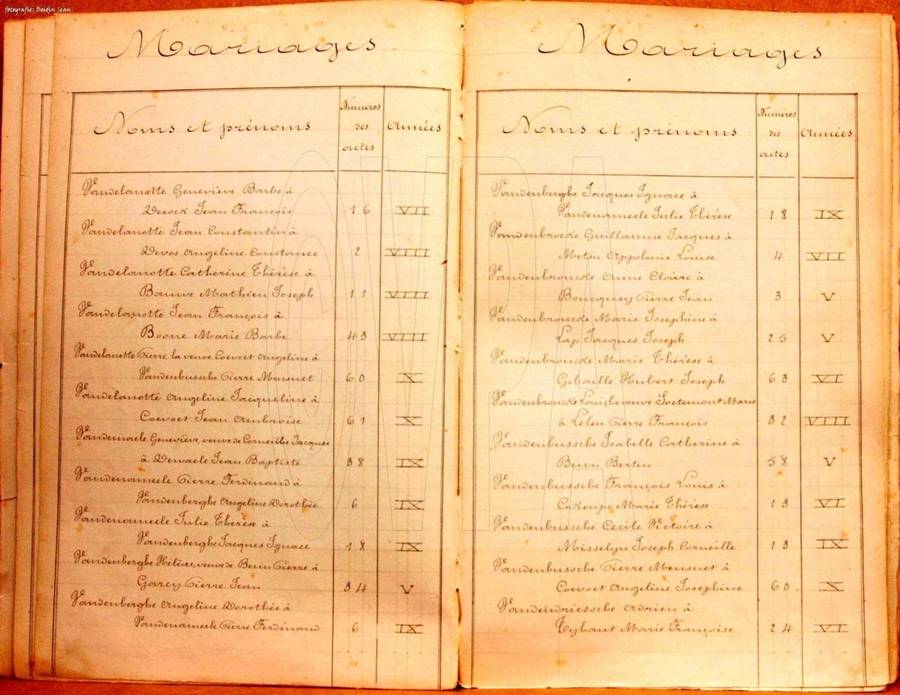 fotografie: Boidin Jean
Mariages
Noms et prénoms
Numéros
des
actes
Années
Vandelanotte Geneviève Barbe à
Dewck Jean François 16 VII
Vandelanotte Jean Constantin à
Devos Angeline Constance 2 VIII
Vandelanotte Catherine Thérèse à
Bauwe Mathieu Joseph 11 VIII
Vandelanotte Jean François à
Boone Marie Barbe 43 VIII
Vandelanotte Pierre la veuve Coevoet Angeline à
Vandenbussche Pierre Mensuet 60 X
Vandelanotte Angeline Jacqueline à
Coevoet Jean Ambroise 61 X
Vandemaele Geneviève, veuve de Corneille Jacques
à Dewaele Jean Baptiste 38 IX
Vandenameele Pierre Ferdinand à
Vandenberghe Angeline Dorothée 6 IX
Vandenameele Julie Thérèse à
Vandenberghe Jacques Ignace 18 IX
Vandenberghe Hélène, veuve de Beun Pierre à
Garey Pierre Jean 34 V
Vandenberghe Angeline Dorothée à
Vandenameele Pierre Ferdinand 6 IX
Mariages
Noms et prénoms
Numéros
des
actes
Années
Vandenberghe Jacques Ignace à
Vandenameele Julie Thérèse 18 IX
Vandenbroucke Guillaume Jacques à
Metsu Appolonie Louise 4 VII
Vandenbroucke Anne Claire à
Boucquey Pierre Jean 3 V
Vandenbroucke Marie Josephine à
Lap Jacques Joseph 25 V
Vandenbroucke Marie Thérèse à
Gebaille Hubert Joseph 63 VI
Vandenbroucke Louis la veuve Marie
à Leleu Pierre François 32 VIII
Vandenbussche Isabelle Catherine à
Beun Bertin 58 V
Vandenbussche François Louis à
Marie Thérèse 13 VI
Vandenbussche Cecile Victoire à
Misselyn Joseph Corneille 13 IX
Vandenbussche Pierre Mensuet à
Coevoet Angeline Josephine 60 X
Vandendriessche Adrien à
Tybaut Marie Françoise 24 VI